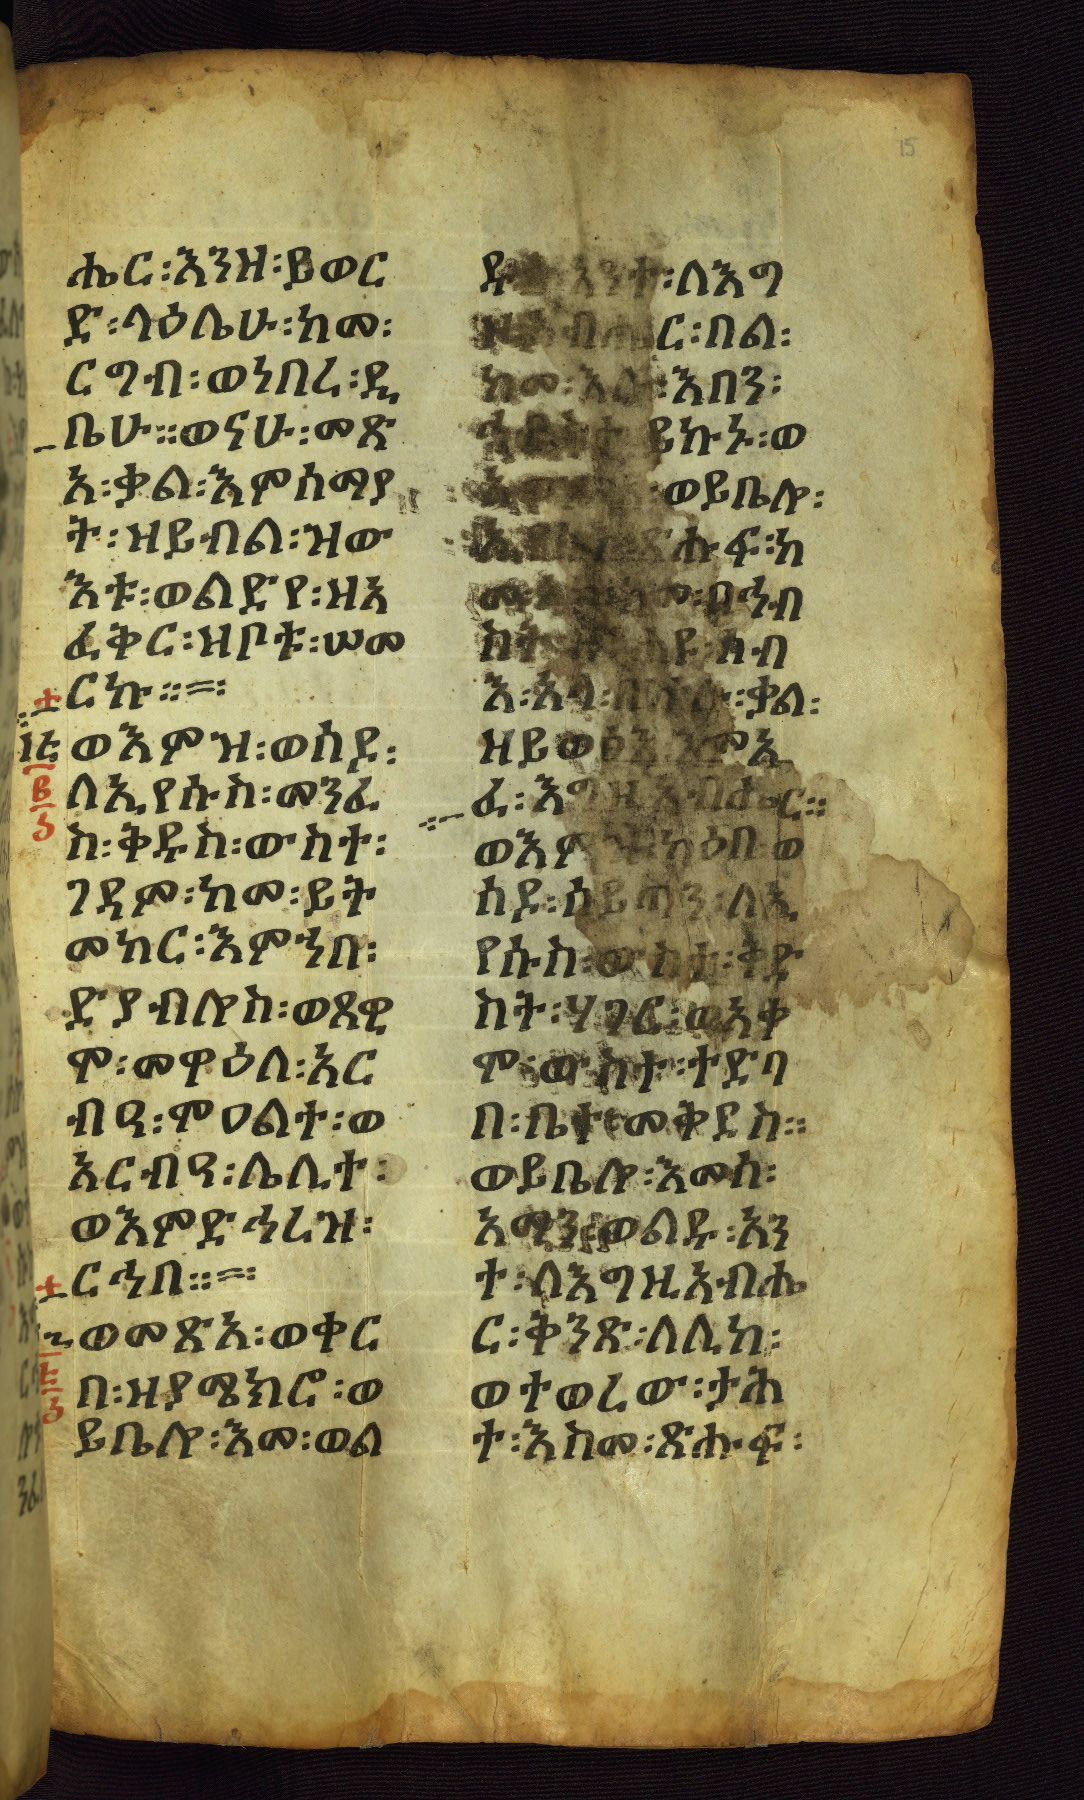 15
ሔር፡እንዘ፡ይወር
ድ፡ላዕሌሁ፡ከመ፡
ርግብ፡ወነበረ፡ዲ
ቤሁ።ወናሁ፡መጽ
አ፡ቃል፡እምሰማያ
ት፡ዝይብል፡ዝው
እቱ፡ወልድየ፡ዘአ
ፈቅር፡ዝቦቱ፡ሠመ
ርኩ።
ወእምዝ፡ወሰደ፡
ለኢየሱስ፡መንፈ
ስ፡ቅዱስ፡ውስተ፡
ገዳም፡ከመ፡ይት
መከር፡እምኀበ፡
ድያብሎስ፡ወጾዊ
ሞ፡መዋዕለ፡አር
ብዓ፡ምዐልተ፡ወ
አርብዓ፡ሌሊተ፡
ወእምድኅረዝ፡
ርኅበ።
ወመጽአ፡ወቀር
በ፡ዝያሜክሮ፡ወ
ይቤሎ፡እመ፡ወል
ዱ፡ ለእግ
ር፡በል፡
ከመ፡ እበን፡
ይኩኑ፡ወ
ወይቤሎ፡
ሑፍ፡ከ
በኅብ
ስት፡ ሰብ
እ፡አላ፡ ቃል፡
ዘይወፅእ፡እምአ
ፈ፡እግዚአብሔር።
ወእም ካዕበ፡ወ
ሰደ፡ሰይጣን፡ለኢ
የሱስ፡ውስተ፡ቅድ
ስት፡ሃገር፡ወአቀ
ሞ፡ውስተ፡ተድባ
በ፡ቤተ፡መቅደስ።
ወይቤሎ፡እመሰ፡
አማን፡ወልዱ፡አን
ተ፡ለእግዚአብሔ
ር፡ቅንጽ፡ለሊከ፡
ወተወረው፡ታሕ
ተ፡እስመ፡ጽሑፍ፡